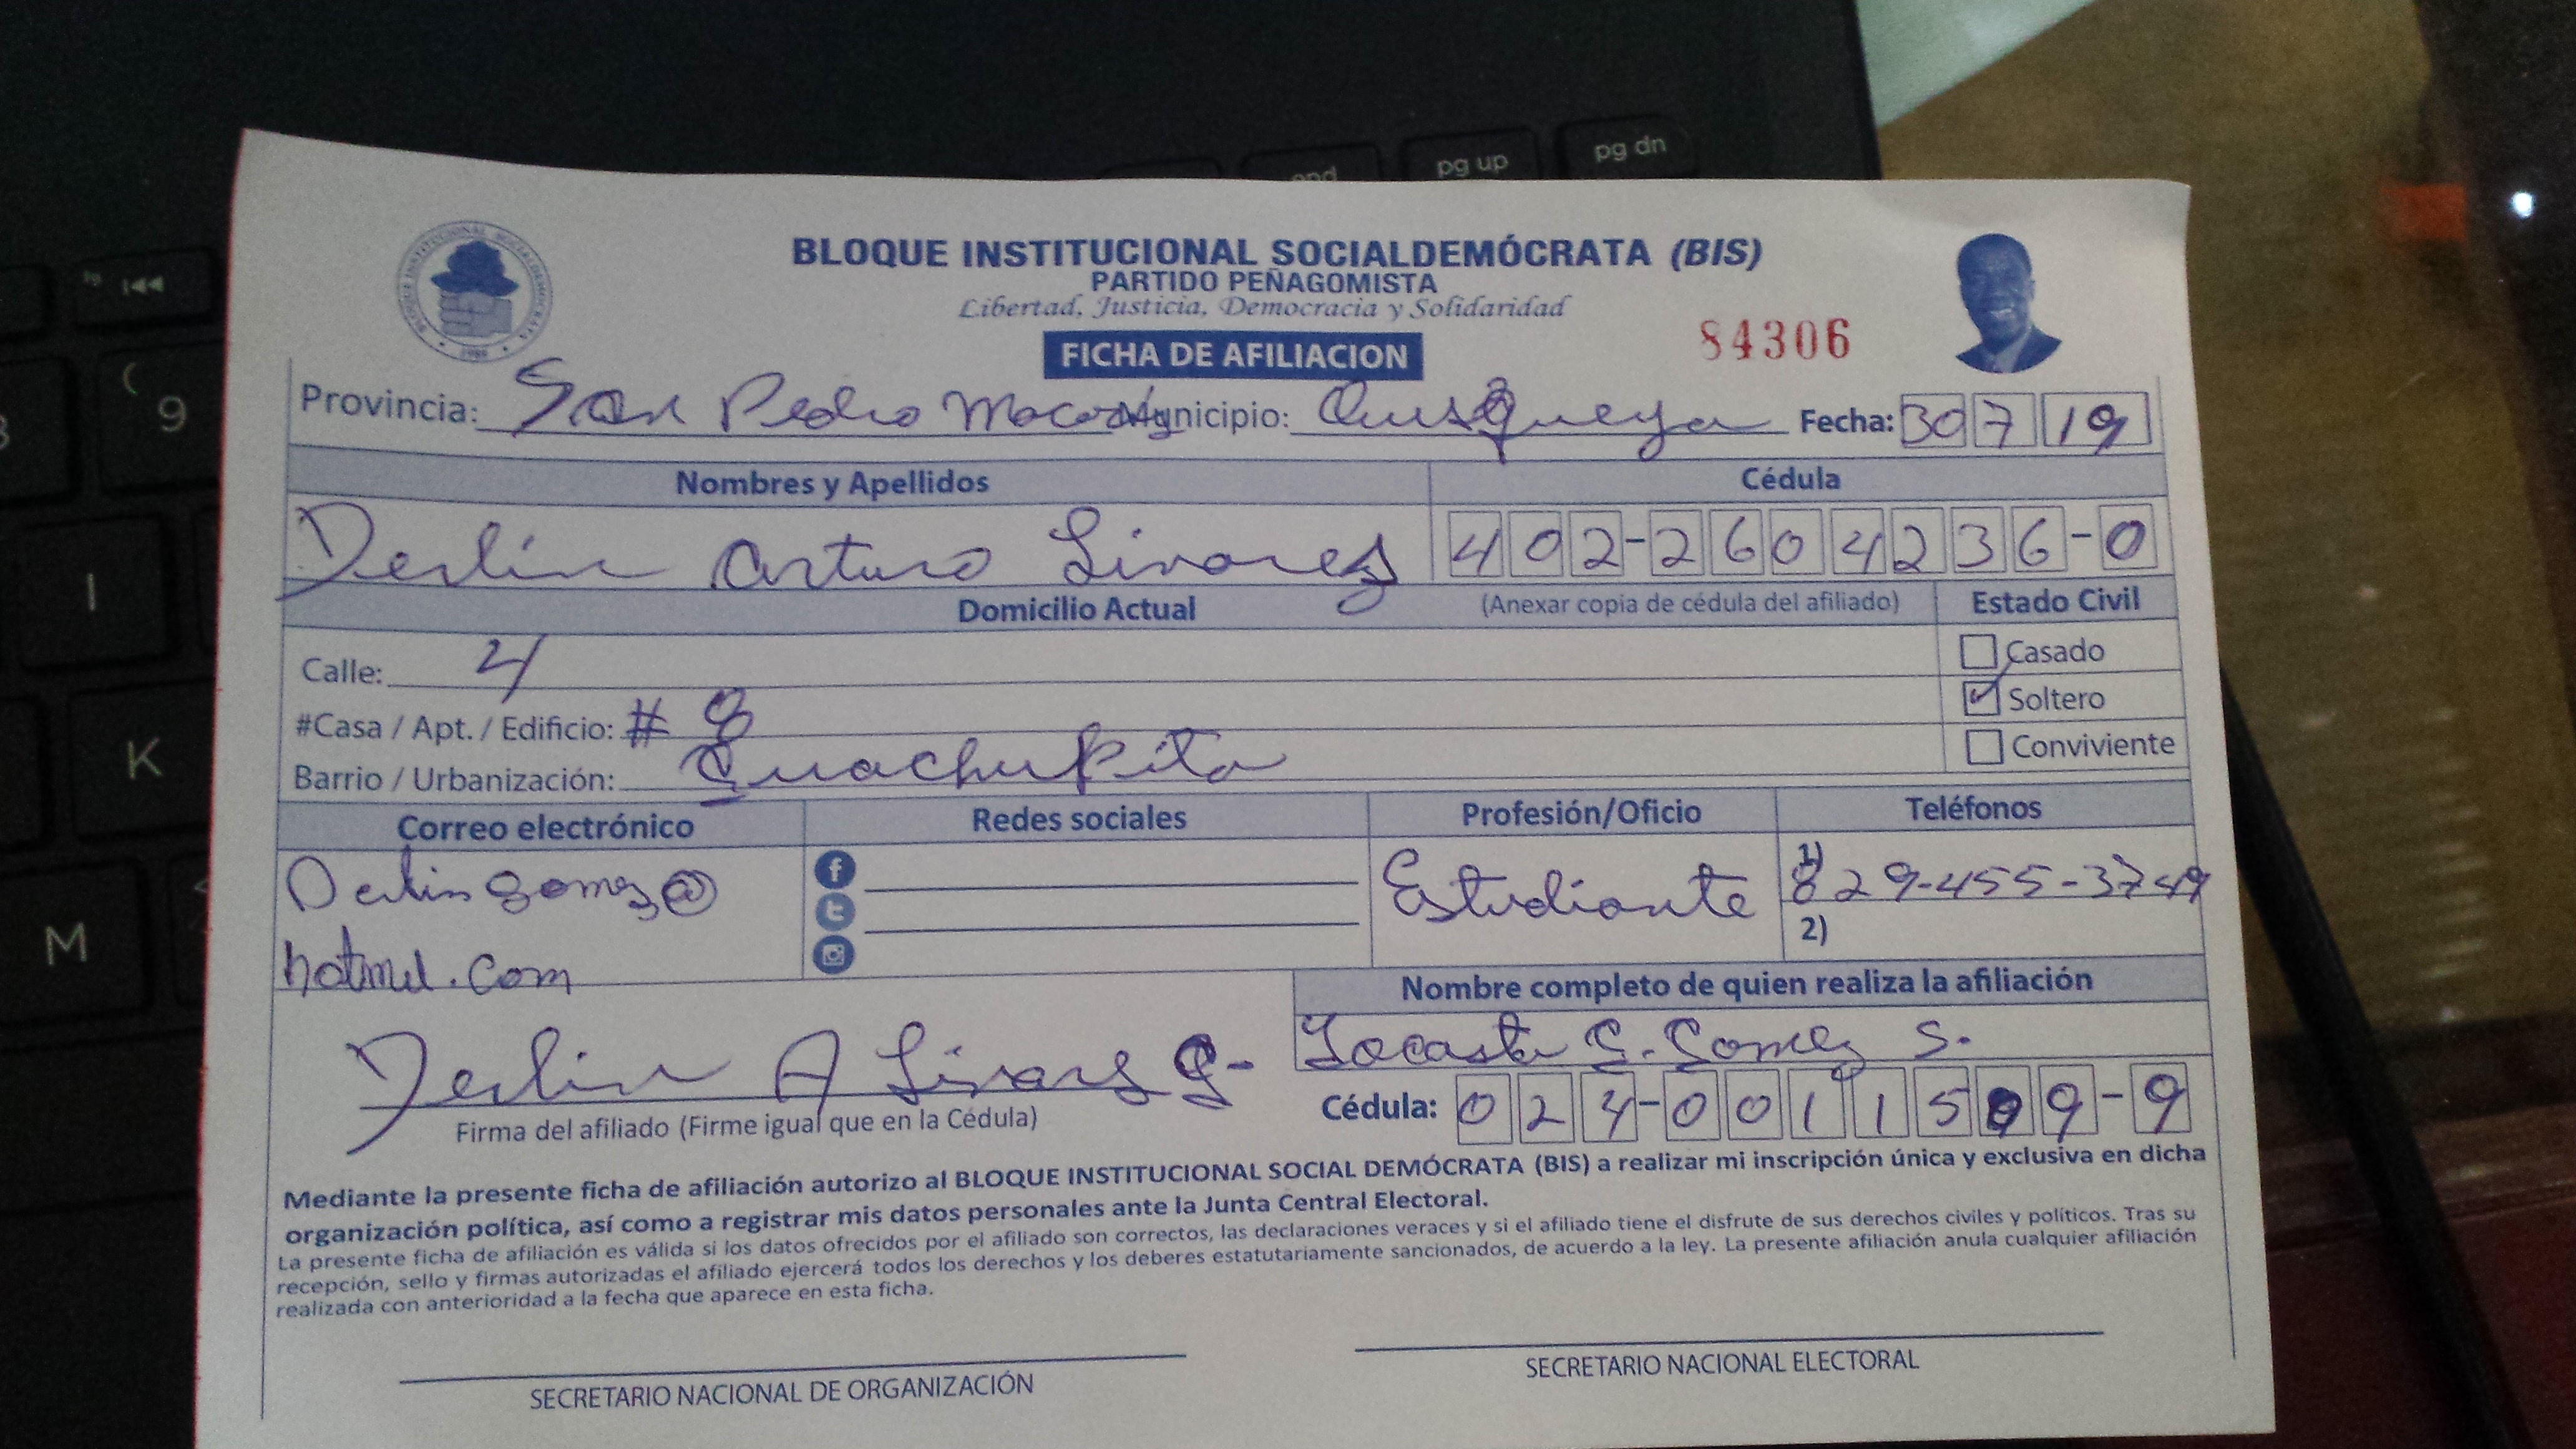 BLOQUE INSTITUCIONAL SOCIALDEMÓCRATA (BIS)
PARTIDO PEÑAGOMISTA
Libertad, Justicia, Democracia y Solidaridad
FICHA DE AFILIACION
84306
Provincia: San Pedro Macorís Municipio: Quisqueya Fecha: 30 7 19
Nombres y Apellidos Cédula
Derlin Arturo Linares 402-2604236-0
Domicilio Actual (Anexar copia de cédula del afiliado) Estado Civil
Calle: 4 Casado
#Casa / Apt. / Edificio: # 8 Soltero
Barrio / Urbanización: Guachupita Conviviente
Correo electrónico Redes sociales Profesión/Oficio Teléfonos
Derlin gomez@ Estudiante 1) 829-455-3749
hotmel.com 2)
Nombre completo de quien realiza la afiliación
Yocasta G. Gomez S.
Derlin A Linares G-
Cédula: 024-0011509-9
Firma del afiliado (Firme igual que en la Cédula)
Mediante la presente ficha de afiliación autorizo al BLOQUE INSTITUCIONAL SOCIAL DEMÓCRATA (BIS) a realizar mi inscripción única y exclusiva en dicha
organización política, así como a registrar mis datos personales ante la Junta Central Electoral.
La presente ficha de afiliación es válida si los datos ofrecidos por el afiliado son correctos, las declaraciones veraces y si el afiliado tiene el disfrute de sus derechos civiles y políticos. Tras su
recepción, sello y firmas autorizadas el afiliado ejercerá todos los derechos y los deberes estatutariamente sancionados, de acuerdo a la ley. La presente afiliación anula cualquier afiliación
realizada con anterioridad a la fecha que aparece en esta ficha.
SECRETARIO NACIONAL DE ORGANIZACIÓN
SECRETARIO NACIONAL ELECTORAL
pg up
pg dn
9
I
K
M